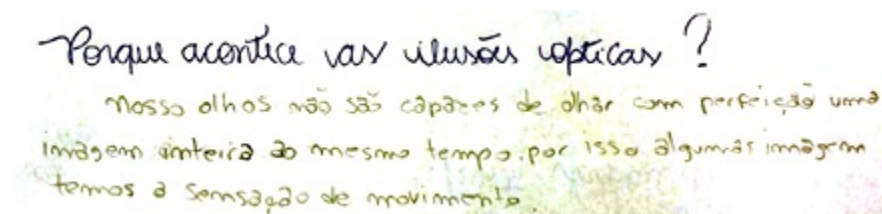 Porque acontece as ilusões opticas ?
Nosso olhos não são capazes de olhar com perfeição uma
imagem inteira ao mesmo tempo, por isso algumas imagem
temos a sensação de movimento.